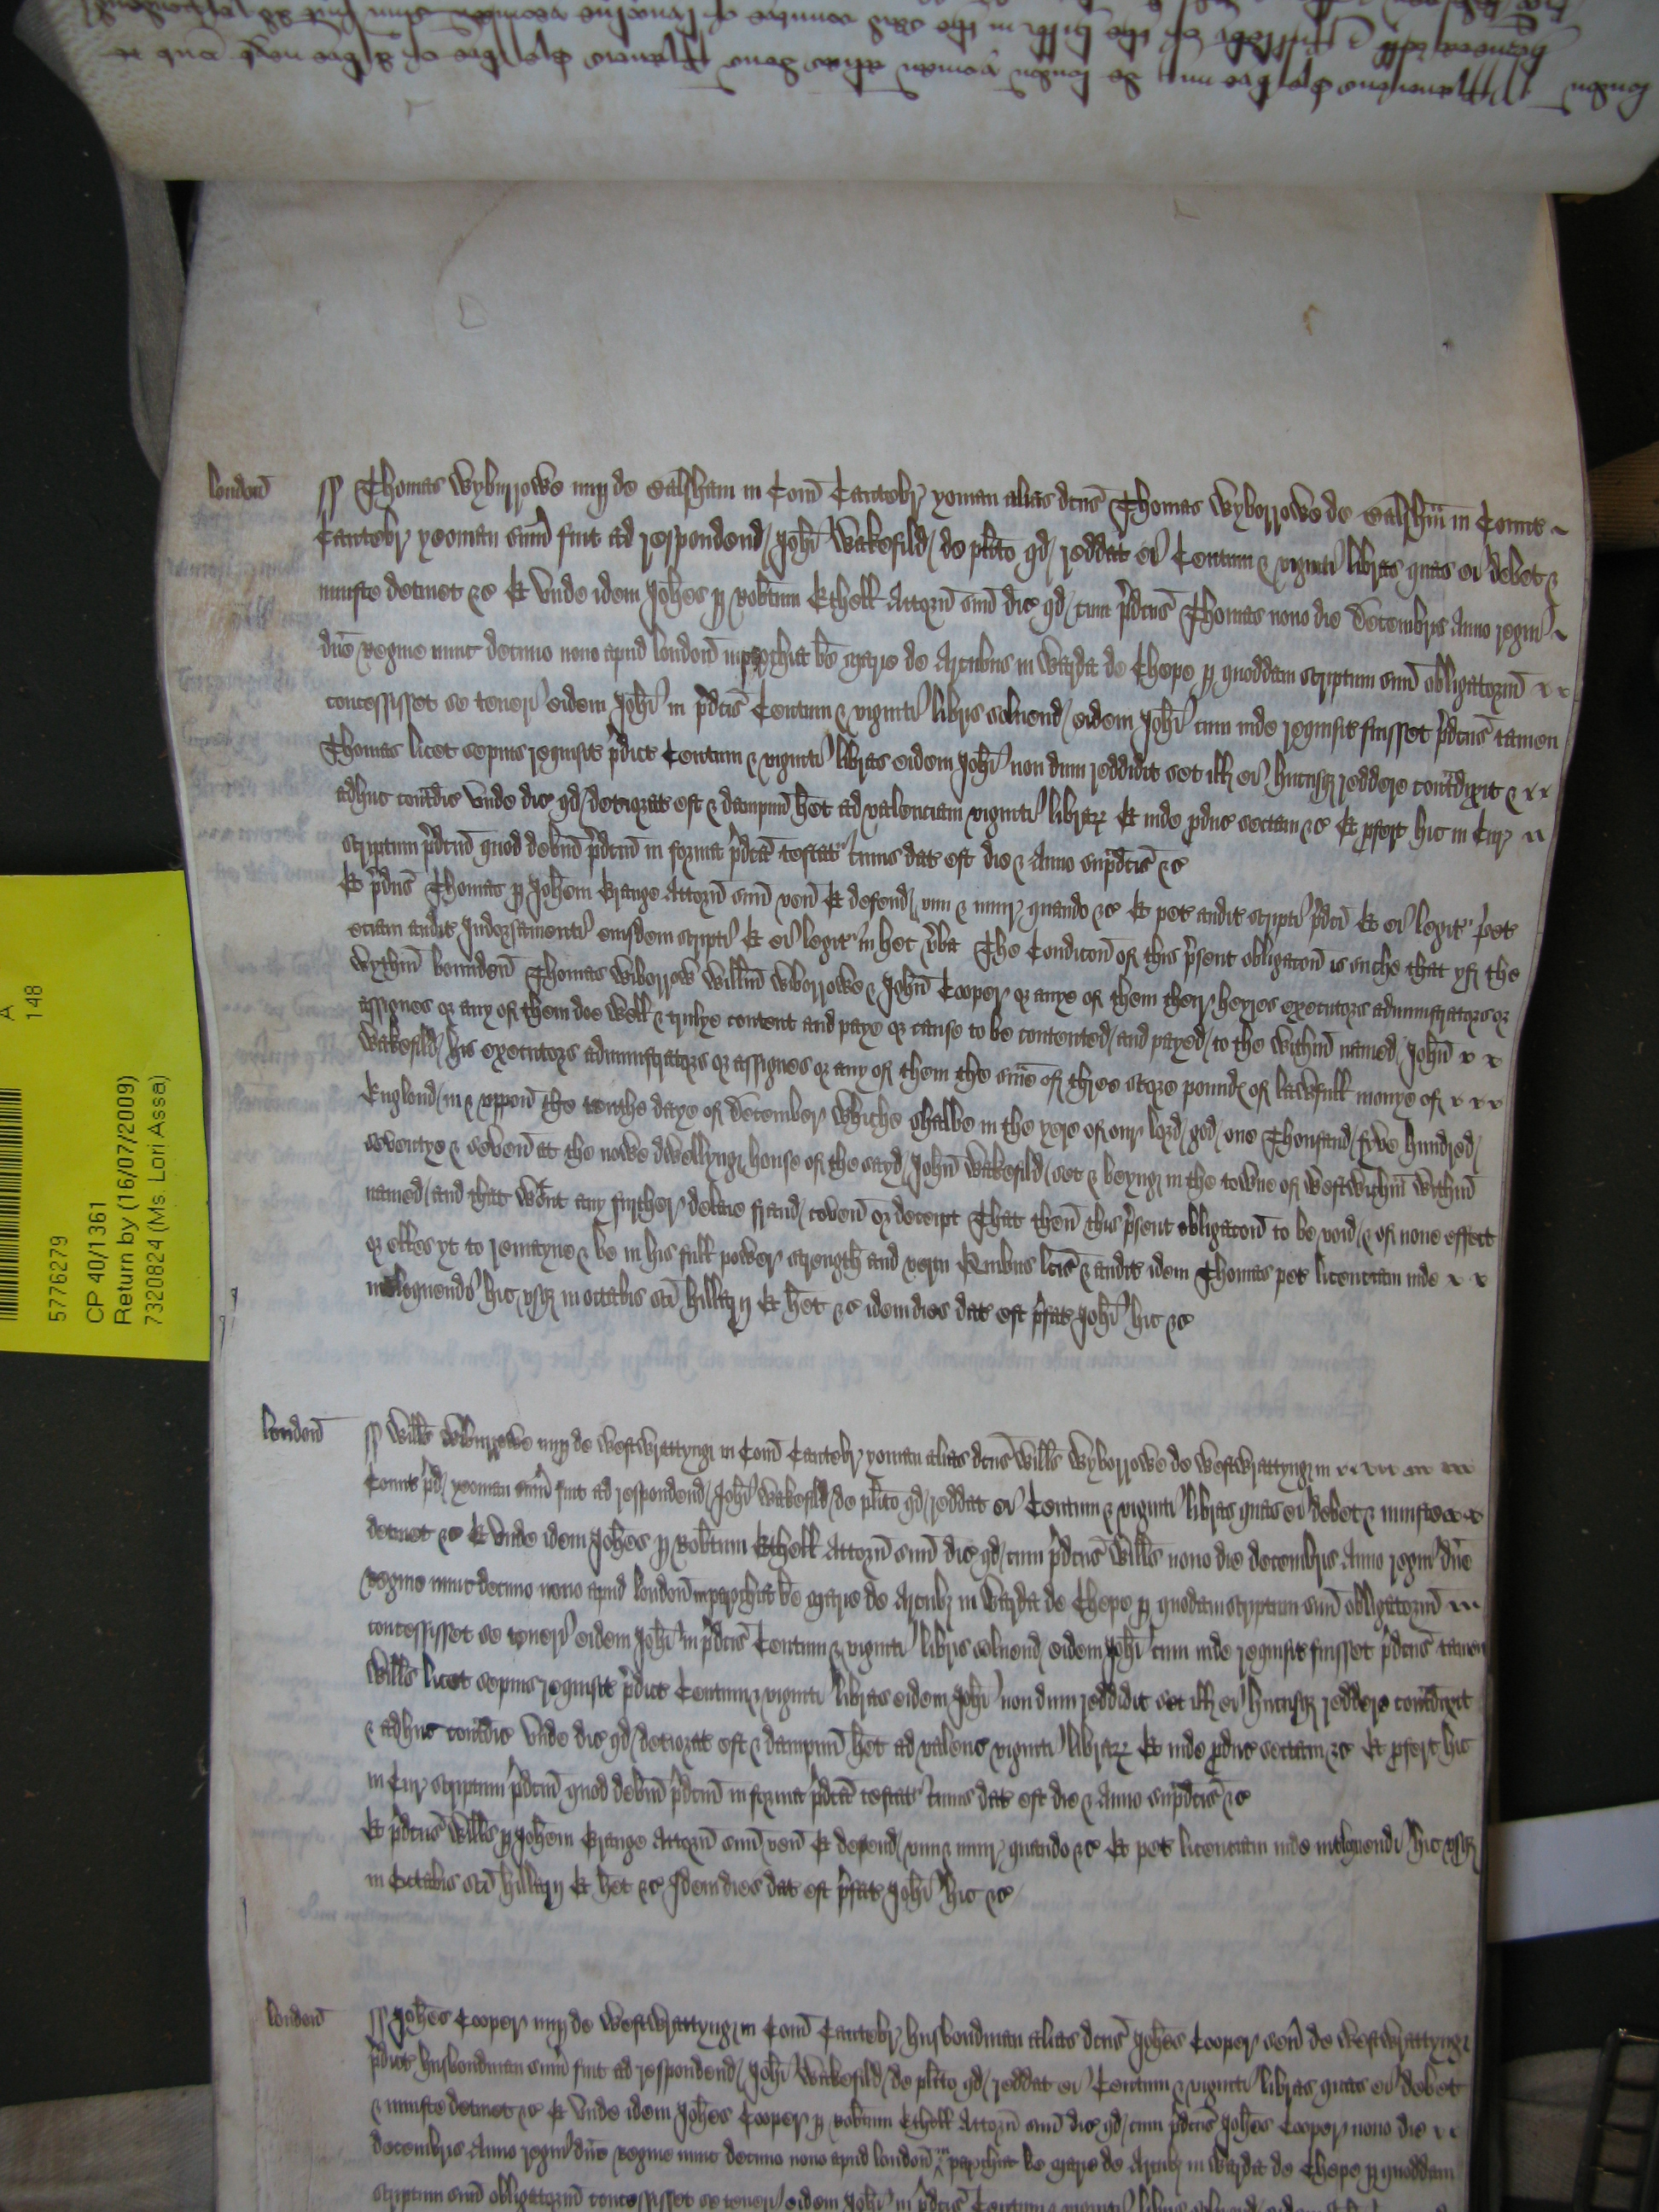 london̄ ss Thomas Wyburrowe nup de Balsham in Com̄ Cantebr yoman alias dcus Thomas Wyborrowe de Balsham in Comit
Cantebr yeoman sum̄ fuit ad respondend Joh̄i Wakefild de pl̄ito qd reddat ei Centum & viginti libras quas ei debet &
iniuste detinet &c Et unde idem Joh̄es p Rob̄tum Ethell Attorn̄ suū dic qd cum p̄dcus Thomas nono die Decembris Anno regni
dn̄e Regine nunc decimo nono apud london̄ in parochia b̄e Marie de Arcubus in Warda de Chepe p quoddam scriptum suū obligatoriū
concessisset se teneri eidem Joh̄i in p̄dcis Centum & viginti libris soluend eidem Joh̄i cum inde requisit fuisset p̄dcus tamen
Thomas licet sepius requisit p̄dict Centum & viginti libras eidem Joh̄i non dum reddidit set ill ei hucusq reddere cont̄dixit &
adhuc cont̄dic Unde dic qd deteriorat est & dampnū h̄et ad valenciam viginti librar Et inde pduc sectam &c Et pfert hic in Cur
scriptum p̄dcū quod debitū p̄dcū in forma p̄dca testat cuius dat est die & Anno sup̄dcis &c
Et p̄dcus Thomas p Joh̄em Grange Attorn̄ suū ven̄ Et defend vim & iniur quando &c Et pet audit scripti p̄dci Et ei legit pet
eciam audit Indorsamenti eiusdem scripti Et ei legit in hec v̄ba The Condicon̄ of this p̄sent obligacon̄ is suche that yf the
wythin̄ bounden̄ Thomas Wiborrow Willm̄ Wborrowe & John̄ Cooper or anye of them their heyres executors administrators or
assignes or any of them doe well & trulye content and paye or cause to be contented and payed to the within̄ named John̄
Wakefild his executors administrators or assignes or any of them the sum̄e of three score pounde of lawfull monye of
England in & vppon̄ the tenthe daye of December whiche shalbe in the yere of our lord god one Thousand fyve hundred
seventye & seven̄ at the nowe dwellyng house of the sayd John̄ Wakefild set & beyng in the towne of Westwickhm̄ wythin̄
named and that wtout any further delaie fraud coven̄ or deceipt That then̄ this p̄sent obligacon̄ to be void & of none effect
or elles yt to remayne & be in his full power strength and vertu Quibus l̄cis & audit idem Thomas pet licenciam inde
int̄loquendi hic vsq in octabis sc̄i Hillarii Et h̄et &c idem dies dat est p̄fat Joh̄i hic &c
london̄ ss Will̄s Wiburrowe nup de Westwrattyng in Com̄ Cantebr yoman alias dcus Will̄s Wyborrowe de Westwrattyng in
Comit p̄d yeoman sum̄ fuit ad respondend Joh̄i Wakefild de pl̄ito qd reddat ei Centum & viginti libras quas ei debet & iniuste
detinet &c Et Unde idem Joh̄es p Rob̄tum Ethell Attorn̄ suū dic qd cum p̄dcus Will̄s nono die decembris Anno regni dn̄e
Regine nunc decimo nono apud london̄ in parochia b̄e Marie de Arcub in Warda de Chepe p quodam scriptum suū obligatoriū
concessisset se teneri eidem Joh̄i in p̄dcis Centum & viginti libris soluend eidem Joh̄i cum inde requisit fuisset p̄dcus tamen
Will̄s licet sepius requisit p̄dict Centum & viginti libras eidem Joh̄i non dum reddidit set ill ei hucusq reddere cont̄dixit
& adhuc cont̄dic Unde dic qd deteriorat est & dampnū h̄et ad valenc viginti librar Et inde pduc sectam &c Et pfert hic
in Cur scriptum p̄dcū quod debitū p̄dcū in forma p̄dca testat cuius dat est die & Anno sup̄dcis &c
Et p̄dcus Will̄s p Joh̄em Grange Attorn̄ suū ven̄ Et defend vim & iniur quando &c Et pet licenciam inde int̄loquendi hic vsq
in Octabis sc̄i Hillarii Et h̄et &c Idem dies dat est p̄fat Joh̄i hic &c
london̄ ss Joh̄es Cooper nup de Westwrattyng in Com̄ Cantebr husbondman alias dcus Joh̄es Cooper sen̄ de Westwrattyng
p̄dict husbondman sum̄ fuit ad respondend Joh̄i Wakefild de pl̄ito qd reddat ei Centum & viginti libras quas ei debet
& iniuste detinet &c Et Unde idem Joh̄es Cooper p Rob̄tum Ethell Attorn̄ suū dic qd cum p̄dcus Joh̄es Cooper nono die
decembris Anno regni dn̄e Regine nunc decimo nono apud london̄ in parochia b̄e Marie de Arcub in Warda de Chepe p quoddam
scriptum suū obligatoriū concessisset se teneri eidem Joh̄i in p̄dcis Centum & viginti libris soluend eidem
A
148
5776279
CP 40/1361
Return by (16/07/2009)
7320824 (Ms. Lori Assa)